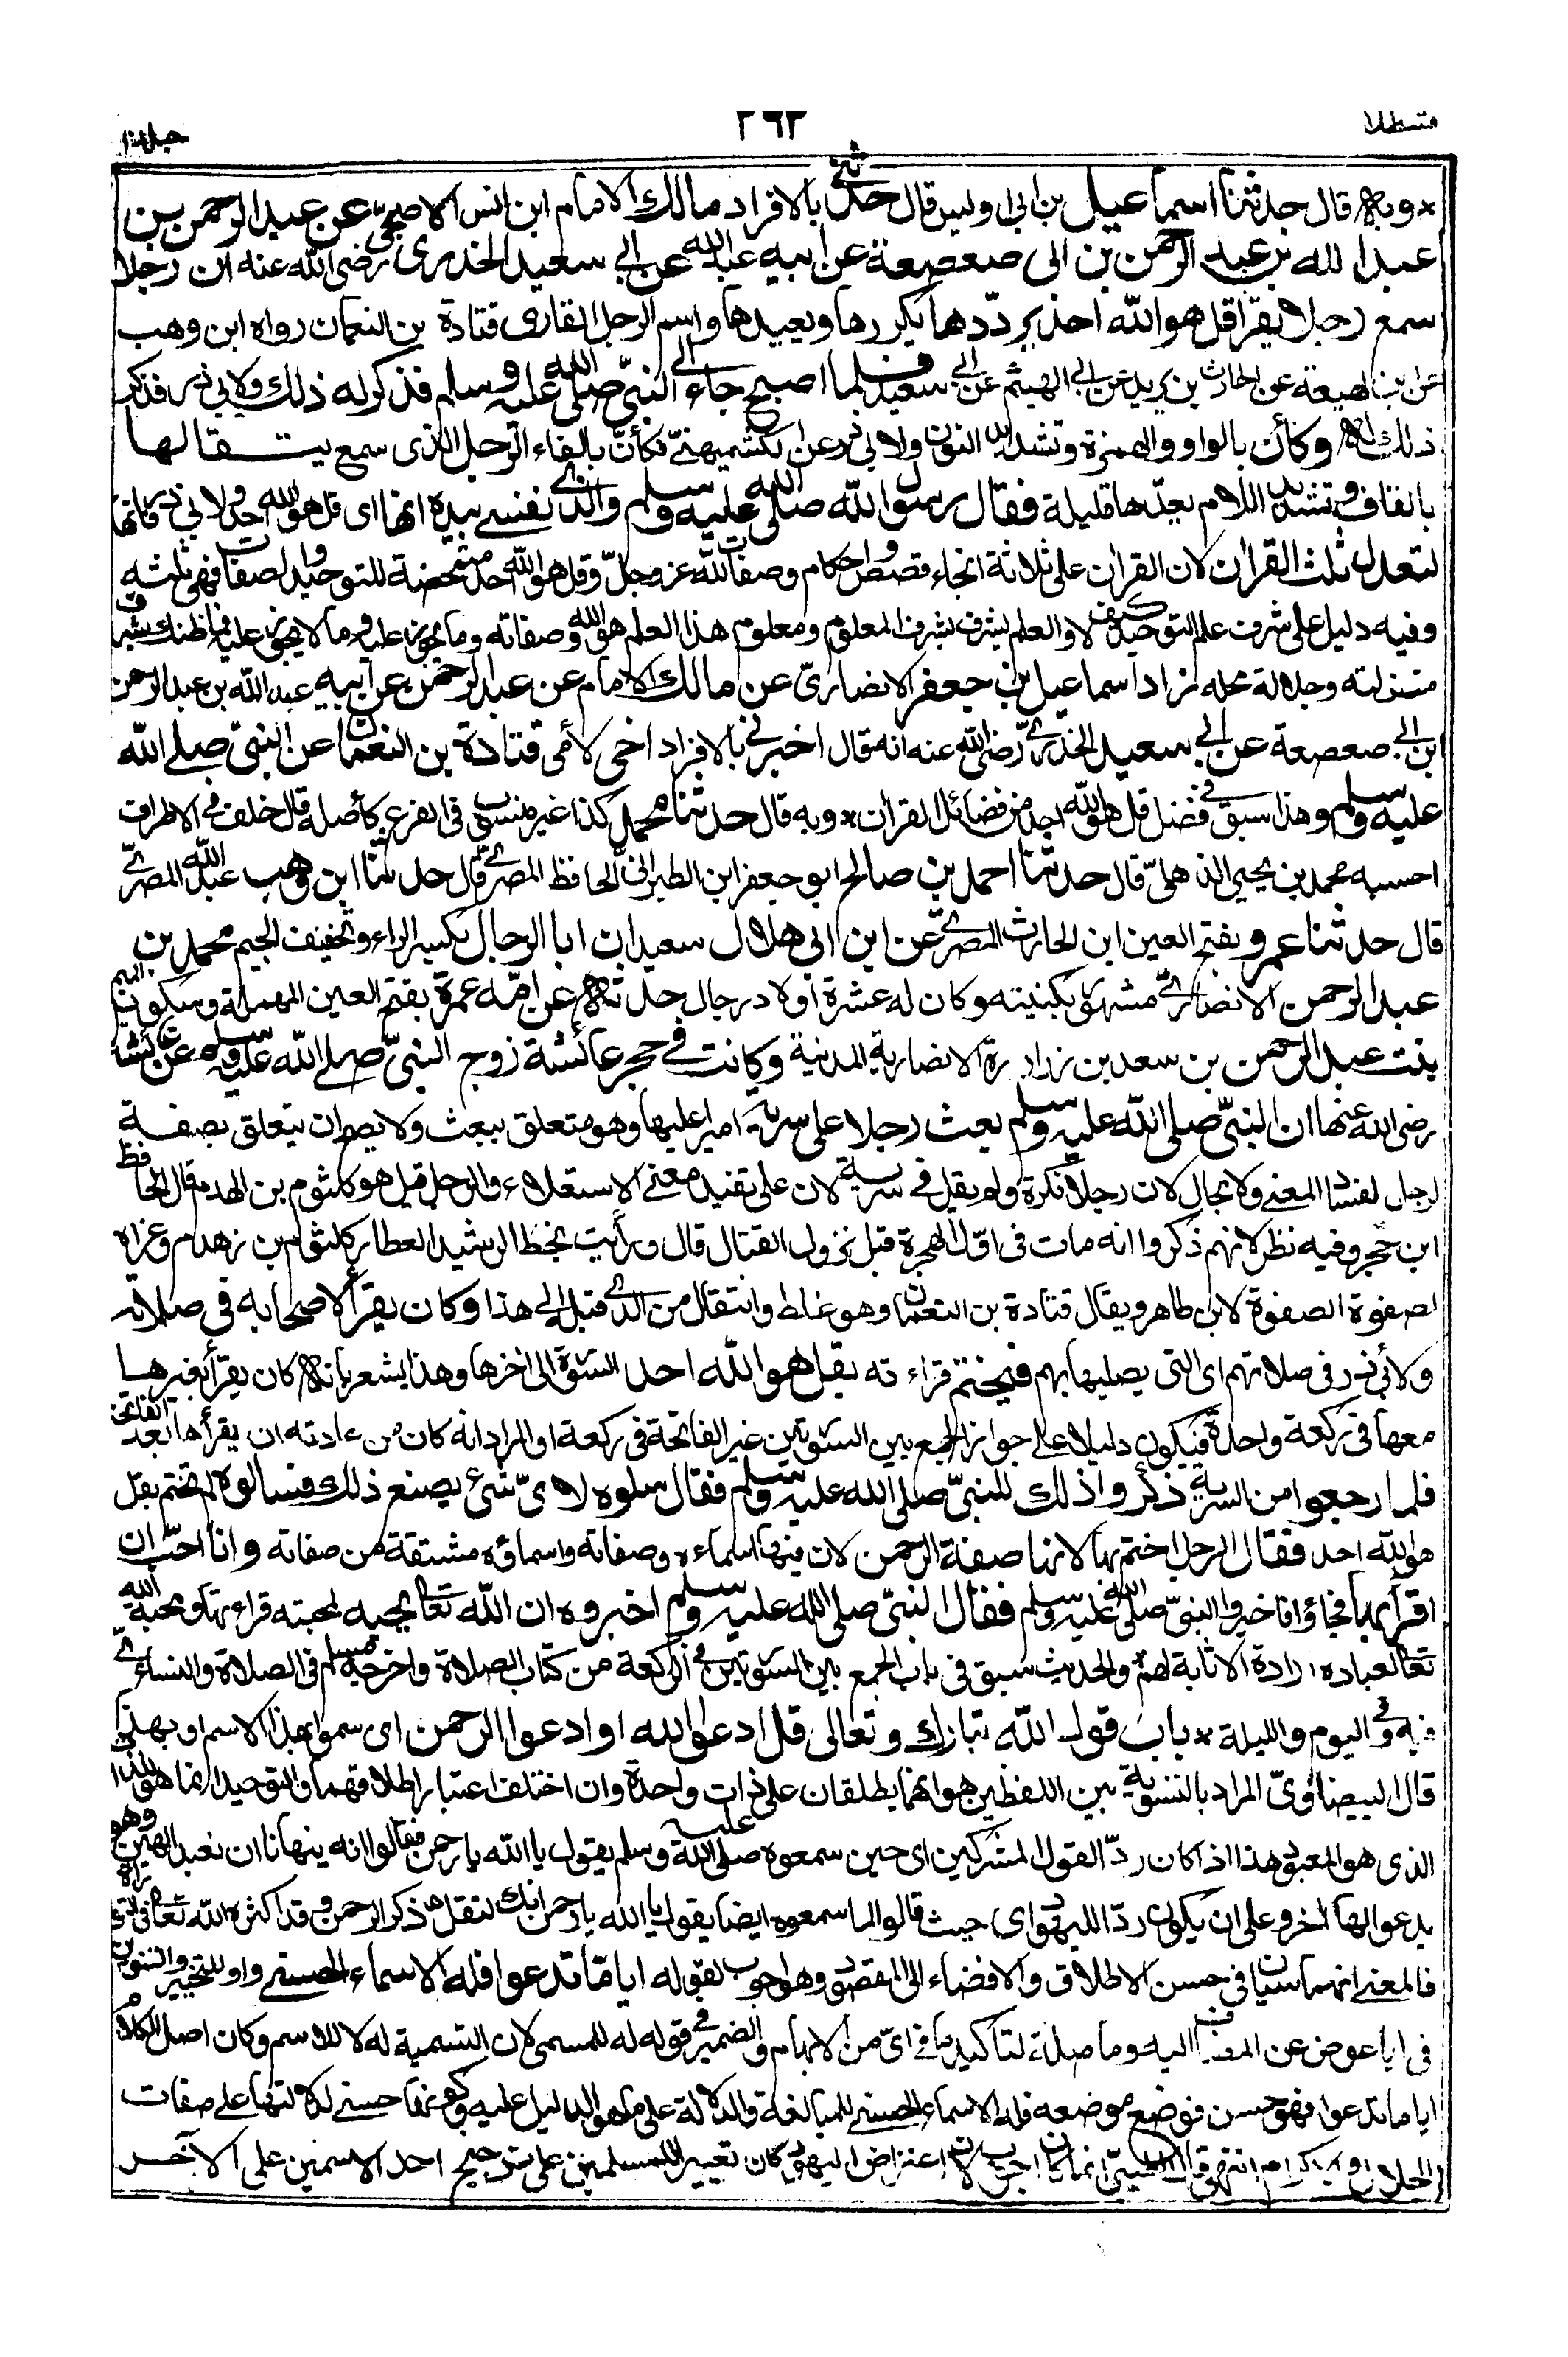 قسطلا ٢٦٢ جلد١٠
* وبه قال حدثنا اسماعيل بن ابي اويس قال حدثني بالافراد مالك الامام ابن انس الاصبحيّ عن عبد الرحمن بن
عبد الله بن عبد الرحمن بن ابى صعصعة عن ابيه عبد الله عن ابي سعيد الخدرى رضي الله عنه ان رجلا
سمع رجلا يقرأ قل هو الله احد يردّدها يكررها ويعيدها واسم الرجل القارى قتادة بن النعمان رواه ابن وهب
عن ابن لهيعة عن الحارث بن يزيد عن ابي الهيثم عن ابي سعيد فلما اصبح جاء الى النبيّ صلى الله عليه وسلم فذكر له ذلك ولابي ذر فذكر
ذلك له وكأن بالواو والهمزة وتشديد النون ولابي ذر عن الكشميهنيّ فكأنّ بالفاء الرجل الذى سمع يتقالها
بالقاف وتشديد اللام يعدّها قليلة فقال رسول الله صلى الله عليه وسلم والذي نفسي بيده انها اى قل هو الله احد ولابي ذر فانها
لتعدل ثلث القرآن لان القرآن على ثلاثة انحاء قصص واحكام وصفات لله عز وجلّ وقل هو الله احد متمحضة للتوحيد والصفات فهى ثلثه
وفيه دليل على شرف علم التوحيد كيف لا والعلم يشرف بشرف المعلوم ومعلوم هذا العلم هو الله وصفاته وما يجوز عليه وما لا يجوز عليه فما ظنك بشرف
منزلته وجلالة محله زاد اسماعيل بن جعفر الانصاريّ عن مالك الامام عن عبد الرحمن عن ابيه عبد الله بن عبد الرحمن
ابن ابي صعصعة عن ابي سعيد الخدري رضي الله عنه انه قال اخبرني بالافراد اخى لأمى قتادة بن النعمان عن النبيّ صلى الله
عليه وسلم وهذا سبق في فضل قل هو الله احد من فضائل القرآن * وبه قال حدثنا محمد كذا غير منسوب فى الفرع كأصله قال خلف في الاطراف
احسبه محمد بن يحيى الذهليّ قال حدثنا احمد بن صالح ابو جعفر ابن الطبراني الحافظ المصري قال حدثنا ابن وهب عبد الله المصريّ
قال حدثنا عمرو بفتح العين ابن الحارث المصريّ عن ابن ابى هلال سعيد ان ابا الرجال بكسر الراء وتخفيف الجيم محمد بن
عبد الرحمن الانصاريّ مشهور بكنيته وكان له عشرة اولاد رجال حدثه عن امّه عمرة بفتح العين المهملة وسكون الميم
بنت عبد الرحمن بن سعد بن زرارة الانصارية المدنية وكانت في حجر عائشة زوج النبيّ صلى الله عليه وسلم عن عائشة
رضى الله عنها ان النبيّ صلى الله عليه وسلم بعث رجلا على سرية اميرا عليها وهو متعلق ببعث ولا يصح ان يتعلق بصفة
لرجل لفساد المعنى ولا بحال لان رجلا نكرة ولم يقل في سرية لان على تفيد معنى الاستعلاء والرجل قيل هو كلثوم بن الهدم قال الحافظ
ابن حجر وفيه نظر لانهم ذكروا انه مات فى اوّل الهجرة قبل نزول القتال قال ورأيت بخط الرشيد العطار كلثوم بن زهدم وعزاه
لصفوة الصفوة لابن طاهر ويقال قتادة بن النعمان وهو غلط وانتقال من الذي قبل الى هذا وكان يقرأ لاصحابه فى صلاته
ولأبي ذر فى صلاتهم اى التى يصليها بهم فيختم قراءته بقل هو الله احد السورة الى اخرها وهذا يشعر بانه كان يقرأ بغيرها
معها فى ركعة واحدة فيكون دليلا على جواز الجمع بين السورتين غير الفاتحة فى ركعة او المراد انه كان من عادته ان يقرأها بعد الفاتحة
فلما رجعوا من السرية ذكروا ذلك للنبيّ صلى الله عليه وسلم فقال سلوه لاىّ شئ يصنع ذلك فسألوه لم تختم بقل
هو الله احد فقال الرجل اختم بها لانها صفة الرحمن لان فيها اسماءه وصفاته واسماؤه مشتقة من صفاته وانا احبّ ان
اقرأ بها فجاؤا فاخبروا النبيّ صلى الله عليه وسلم فقال النبيّ صلى الله عليه وسلم اخبروه ان الله تعالى يحبه لمحبته قراءتها ومحبة الله
تعالى لعباده ارادة الاثابة لهم والحديث سبق فى باب الجمع بين السورتين في الركعة من كتاب الصلاة واخرجه مسلم فى الصلاة والنساءيّ
فيه وفي اليوم والليلة * باب قول الله تبارك وتعالى قل ادعوا الله او ادعوا الرحمن اى سموا بهذا الاسم او بهذا
قال البيضاوىّ المراد بالتسوية بين اللفظين هو انهما يطلقان على ذات واحدة وان اختلف اعتبار اطلاقهما والتوحيد انما هو للذات
الذى هو المعبود هذا اذا كان ردّا لقول المشركين اى حين سمعوه صلى الله عليه وسلم يقول يا الله يا رحمن فقالوا انه ينهانا ان نعبد الهين وهو
يدعو الها اخر وعلى ان يكون ردّا لليهود اى حيث قالوا لما سمعوه ايضا يقول يا الله يا رحمن انك لتقل ذكر الرحمن وقد اكثره الله تعالى فى التوراة
فالمعنى انهما سيان فى حسن الاطلاق والافضاء الى المقصود وهو اجوب لقوله ايا مّا تدعوا فله الاسماء الحسنى واو للتخيير والتنوين
فى ايا عوض عن المضاف اليه وما صلة لتاكيد ما في اىّ من الابهام والضمير في قوله له للمسمى لان التسمية له لا للاسم وكان اصل الكلام
ايا ما تدعوا فهو حسن فوضع موضعه فله الاسماء الحسنى للمبالغة والدلالة على ما هو الدليل عليه وكونها حسنى لدلالتها على صفات
الجلال والاكرام انتهى قال الطيبي انما كان اجوب لان اعتراض اليهود كان تعييرا للمسلمين على ترجيح احد الاسمين على الآخر